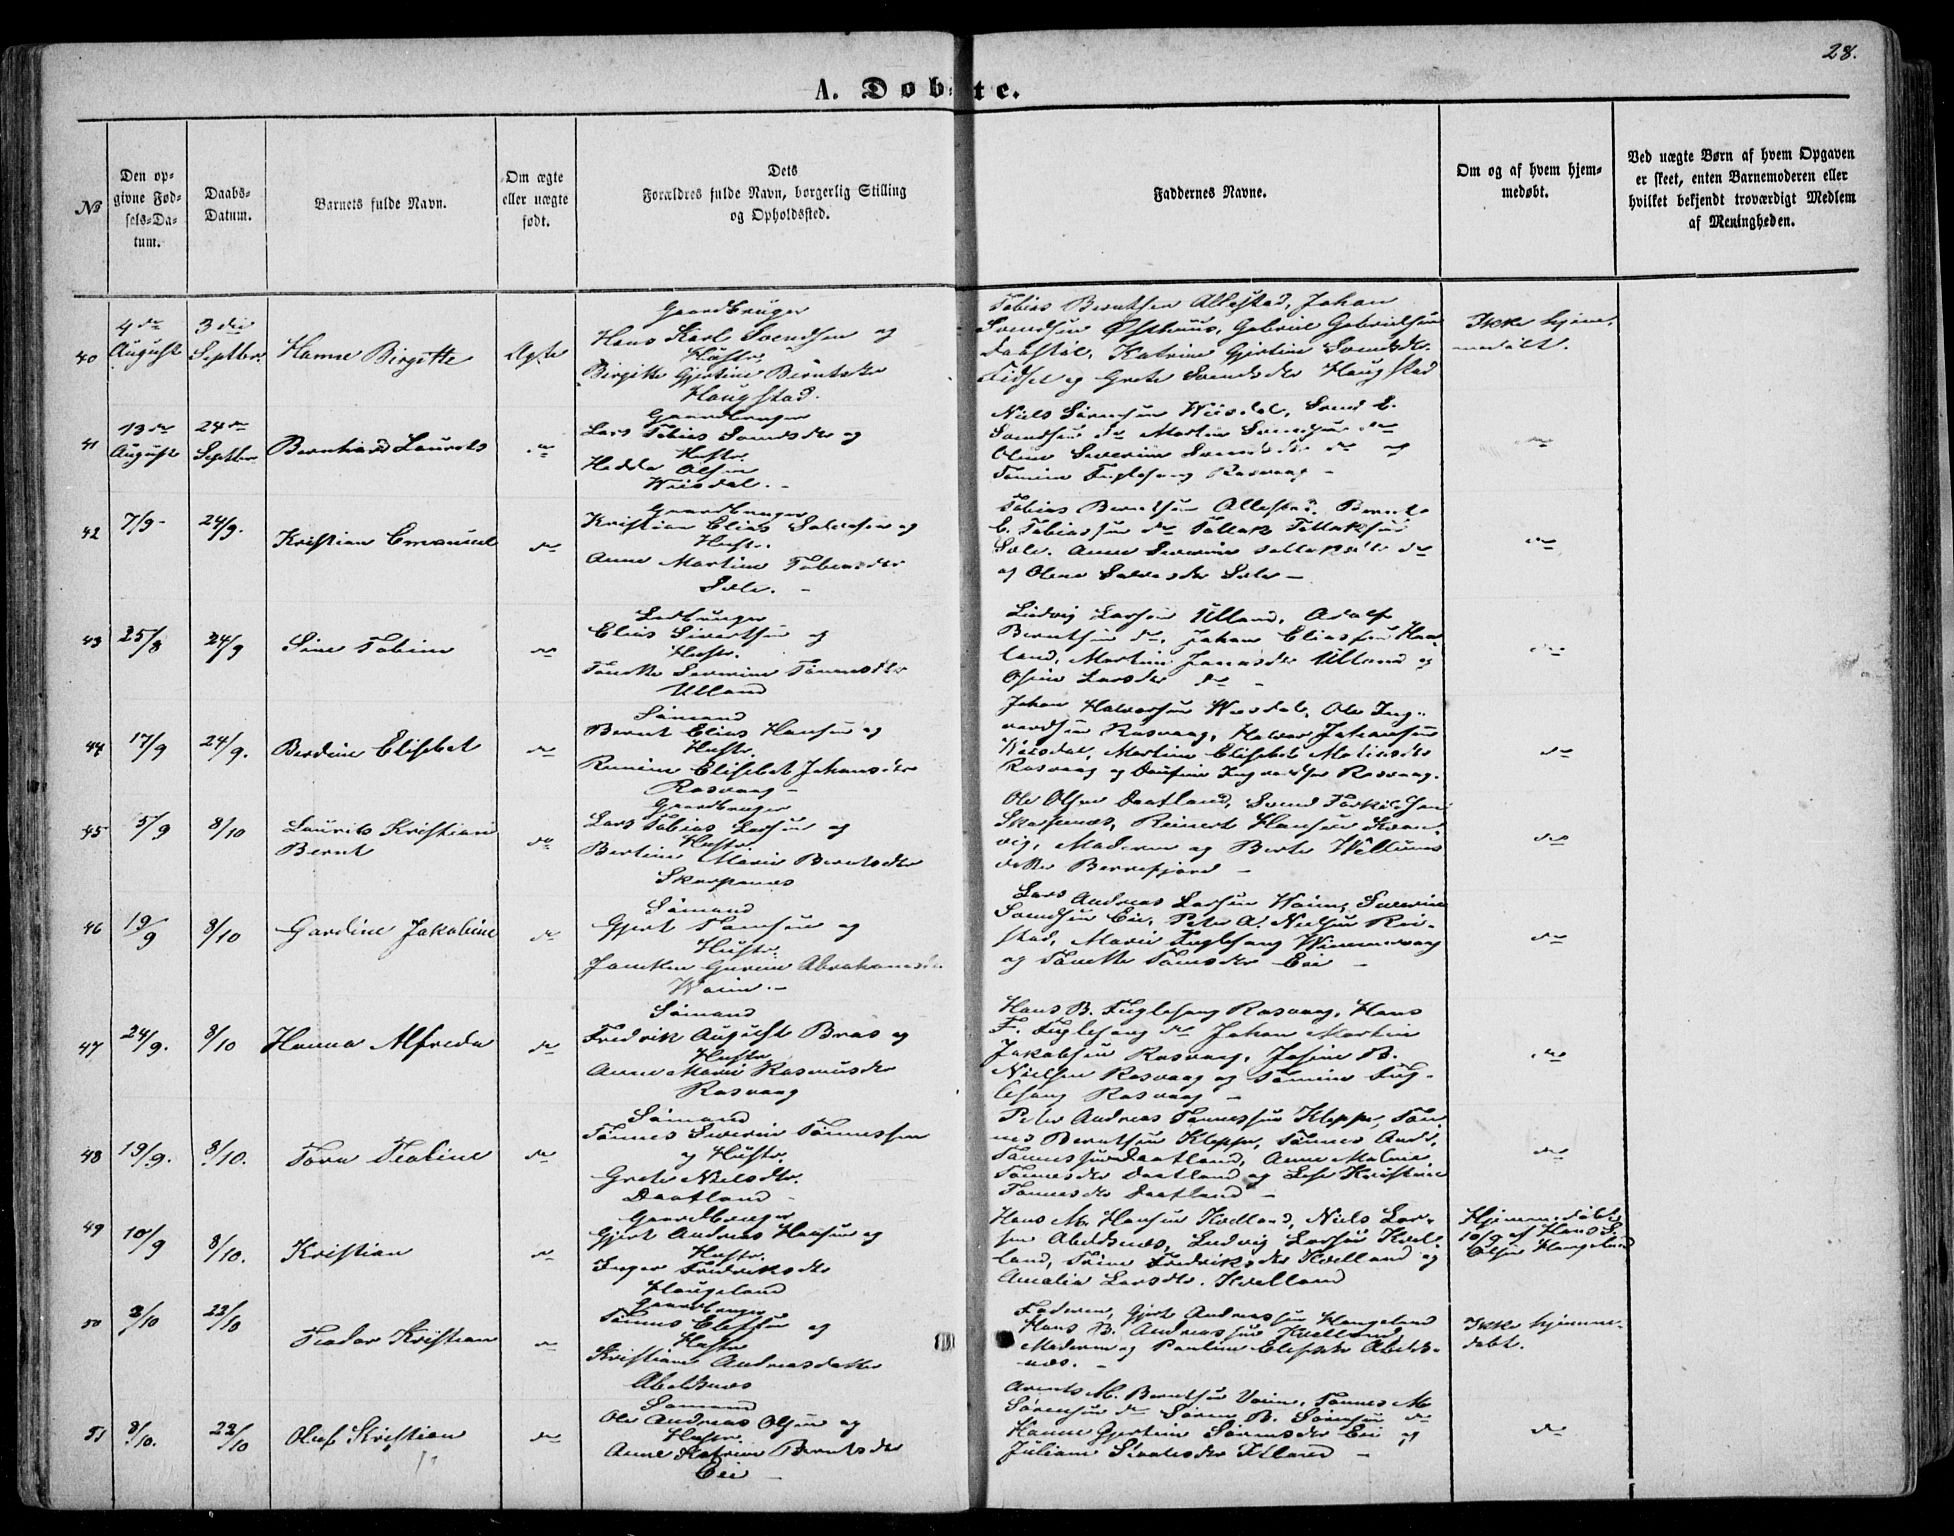 28.
A. Døbte.
№
Den opgivne Fødsels-Datum.
Daabs-Datum.
Barnets fulde Navn.
Om ægte eller uægte født.
Dets Forældres fulde Navn, borgerlig Stilling og Opholdsted.
Faddernes Navne.
Om og af hvem hjemmedøbt.
Ved uægte Børn af hvem Opgaven er skeet, enten Barnemoderen eller hvilket bekjendt troværdigt Medlem af Menigheden.
40
4de August
3die Septbr.
Hanne Birgitte
Ægte
Gaardbruger
Hans Karl Svendsen og
Hustr.
Birgitte Gjertine Berntsdtr
Haugstad.
Tobias Berntsen Allestad, Johan
Svendsen Østhuus, Gabriel Gabrielsen
Katrine Gjertine Svendsdtr.
og Grete Svendsdtr Haugstad
Ikke hjemmedøbt.
41
13de August
24de Septbr.
Bernhard Laurits
do
Gaardbruger
Lars Tobias Svendsen og
Hustr.
Hedda Olsen
Weisdal. -
Niels Sørensen Weisdal, Svend E.
Svendsen do Martin Svendsen do
Oline Severine Svendsdtr do og
Tomine Fuglesang Rasvaag -
do
42
7/9
24/9.
Kristian Emanuel
do
Gaardbruger
Kristian Elias Salvesen og
Hustr.
Anne Martine Tobiasdtr
Sæle. -
Tobias Berntsen Allestad, Bernt
E. Tobiassen do Tollak Tollaksen
Sæle. Anne Severine Tollaksdtr do
og Olene Salvesdtr Sæle -
do
43
25/8
24/9
Sine Tobine
do
Elias Sivertsen og
Hustr.
Tonette Severine Tønnesdtr
Ulland
Ludvig Larsen Ulland, Adolf
Berntsen do, Johan Eliassen Haaland,
Martine Jonasdtr Ulland og
Larsdtr do -
do
44
17/9
24/9.
Berdine Elisebet
do
Sømand
Bernt Elias Hansen og
Hustr.
Elisebet Johansdtr
Rasvaag -
Johan Halvorsen Weisdal, Ole Ingvardsen
Rasvaag, Halvor Johansen
Weisdal, Martine Elisebet
Rasvaag og Ingvardsen Rasvaag.
do
45
5/9
8/10
Laurits Kristian
Bernt
do
Gaardbruger
Lars Tobias Larsen og
Hustr.
Bertine Marie Berntsdtr
Skarpenæs
Ole Olsen Daatland, Svend
Skarpenæs, Reinert Hansen Kvanvig,
Moderen og Berte Villumsdatter
Berrefjord -
do
46
19/9
8/10
Gardine Jakobine
do
Sømand
Gjert Tomesen og
Hustr.
Gurine Abrahamsdtr
Lars Andreas Larsen
Svendsen Eie, Peter A. Nielsen
Marie Fuglesang
og Tonette Tomesdtr Eie -
do
47
24/9.
8/10
Hanna Alfreda
do
Sømand
Fredrik August Bras og
Hustr
Anne Marie Rasmusdtr
Rasvaag
Hans B. Fuglesang Rasvaag, Hans
F. Fuglesang do Johan Martin
Jakobsen Rasvaag, Josine B.
Nielsen Rasvaag og Tomine Fuglesang
Rasvaag -
do
48
19/9.
8/10.
Tora Teoline
do
Sømand
Tønnes Severin Tønnessen
og Hustr.
Grete Nielsdtr.
Daatland -
Peter Andreas Tønnessen Kleppe, Tønnes
Berntsen Kleppe, Tønnes Andr.
Tønnessen Daatland, Anne Malene
Tønnesdtr Daatland og Kristine
Tønnesdtr Daatland -
do
49
10/9
8/10.
Kristian
do
Gaardbruger
Gjert Andreas Hansen og
Hustr.
Inger Fredriksdtr
Haugeland
Hans M. Hansen Kvelland, Niels Larsen
Abelsnæs, Ludvig Larsen Kvelland,
Trine Fredriksdtr Kvelland og
Amalia Larsdtr. Kvelland
Hjemmedøbt
10/9 af Hans S.
Olsen Haugeland
50
3/10
22/10
Teodor Kristian
do
Gaardbruger
Tønnes Elefsen og
Hustr
Kristiane Andreasdatter
Abelsnæs
Faderen, Gjert Andreassen Haugeland
Hans B. Andreassen Kvelland
Moderen og Pauline Elefsdtr Abelsnæs. -
Ikke hjemmedøbt.
51
8/10.
22/10
Oluf Kristian
do
Sømand
Ole Andreas Olsen og
Hustr
Anne Katrine Berntsdtr
Eie -
M. Berntsen Tønnes M
Sørensen do Søren B. Sørensen do
Hanne Gjertine Sørensdtr Eie og
Juliane -
do